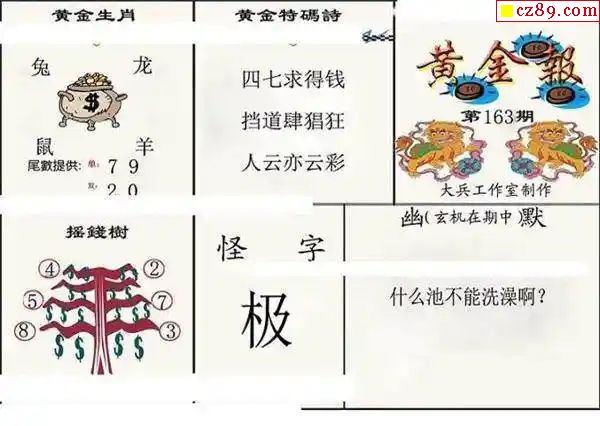 黄金生肖
兔 龙
鼠 羊
尾數提供: 单: 7 9
双: 2 0
黄金特碼詩
四七求得钱
挡道肆猖狂
人云亦云彩
cz89.com
黄金報
第163期
大兵工作室制作
摇錢樹
④ ②
⑤ ⑦
⑧ ③
怪 字
极
幽(玄机在期中)默
什么池不能洗澡啊?